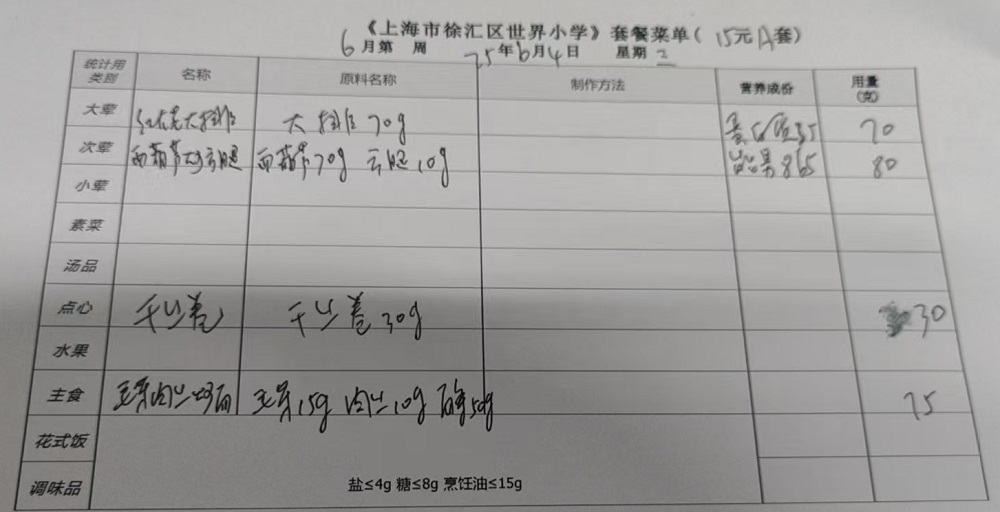 《上海市徐汇区世界小学》套餐菜单(15元A套)
6月第 周 25年6月4日 星期三
统计用类别 名称 原料名称 制作方法 营养成份 用量(克)
大荤 大排 大排70g 蛋白质35 70
次荤 西葫芦炒云腿 西葫芦70g 云腿10g 能量865 80
小荤
素菜
汤品
点心 千丝卷 千丝卷30g 30
水果
主食 毛菜肉丝炒面 毛菜15g 肉丝10g 面50g 75
花式饭
调味品 盐≤4g 糖≤8g 烹饪油≤15g